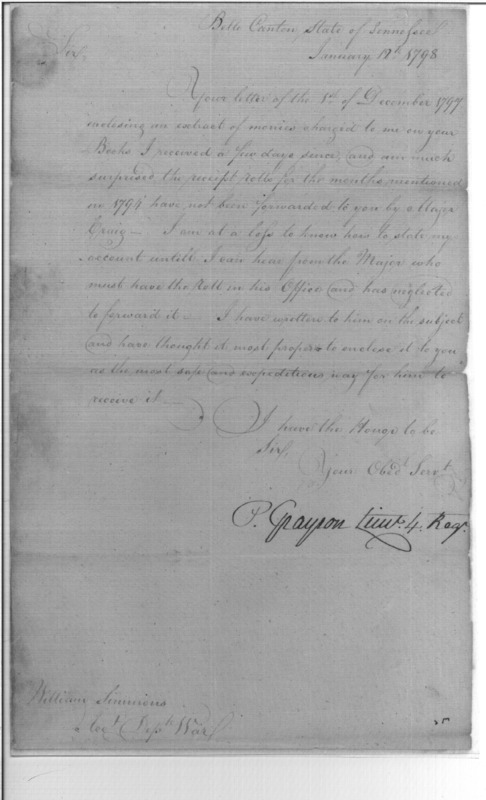 Belle Canton State of Tennessee
January 12th 1798
Sir,
Your letter of the 1st of December 1797
inclosing an extract of monies charged to me on your
Books I received a few days since, and am much
surprised the receipt Rolls for the months mentioned
in 1794 have not been forwarded to you by Major
Craig — I am at a loss to know how to state my
account untill I can hear from the Major who
must have the Roll in his Office and has neglected
to forward it — I have written to him on the subject
and have thought it most proper to enclose it to you
as the most safe and expeditious way for him to
receive it —
I have the Honor to be
Sir,
Your Obedt. Servt.
P. Grayson Lieut. 4. Regt.
William Simmons
Acct. Dept. War